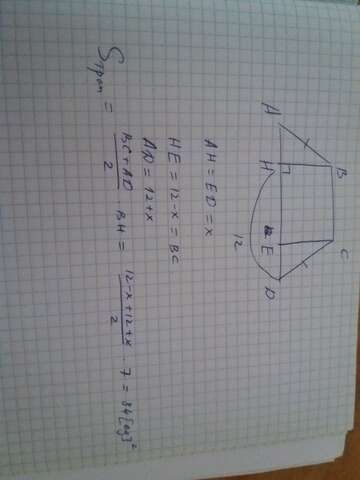 A
B
C
H
E
D
12
AH = ED = x
HE = 12-x = BC
AD = 12+x
Sтрап = BC+AD/2 BH = 12-x+12+x/2 · 7 = 84[ед]²